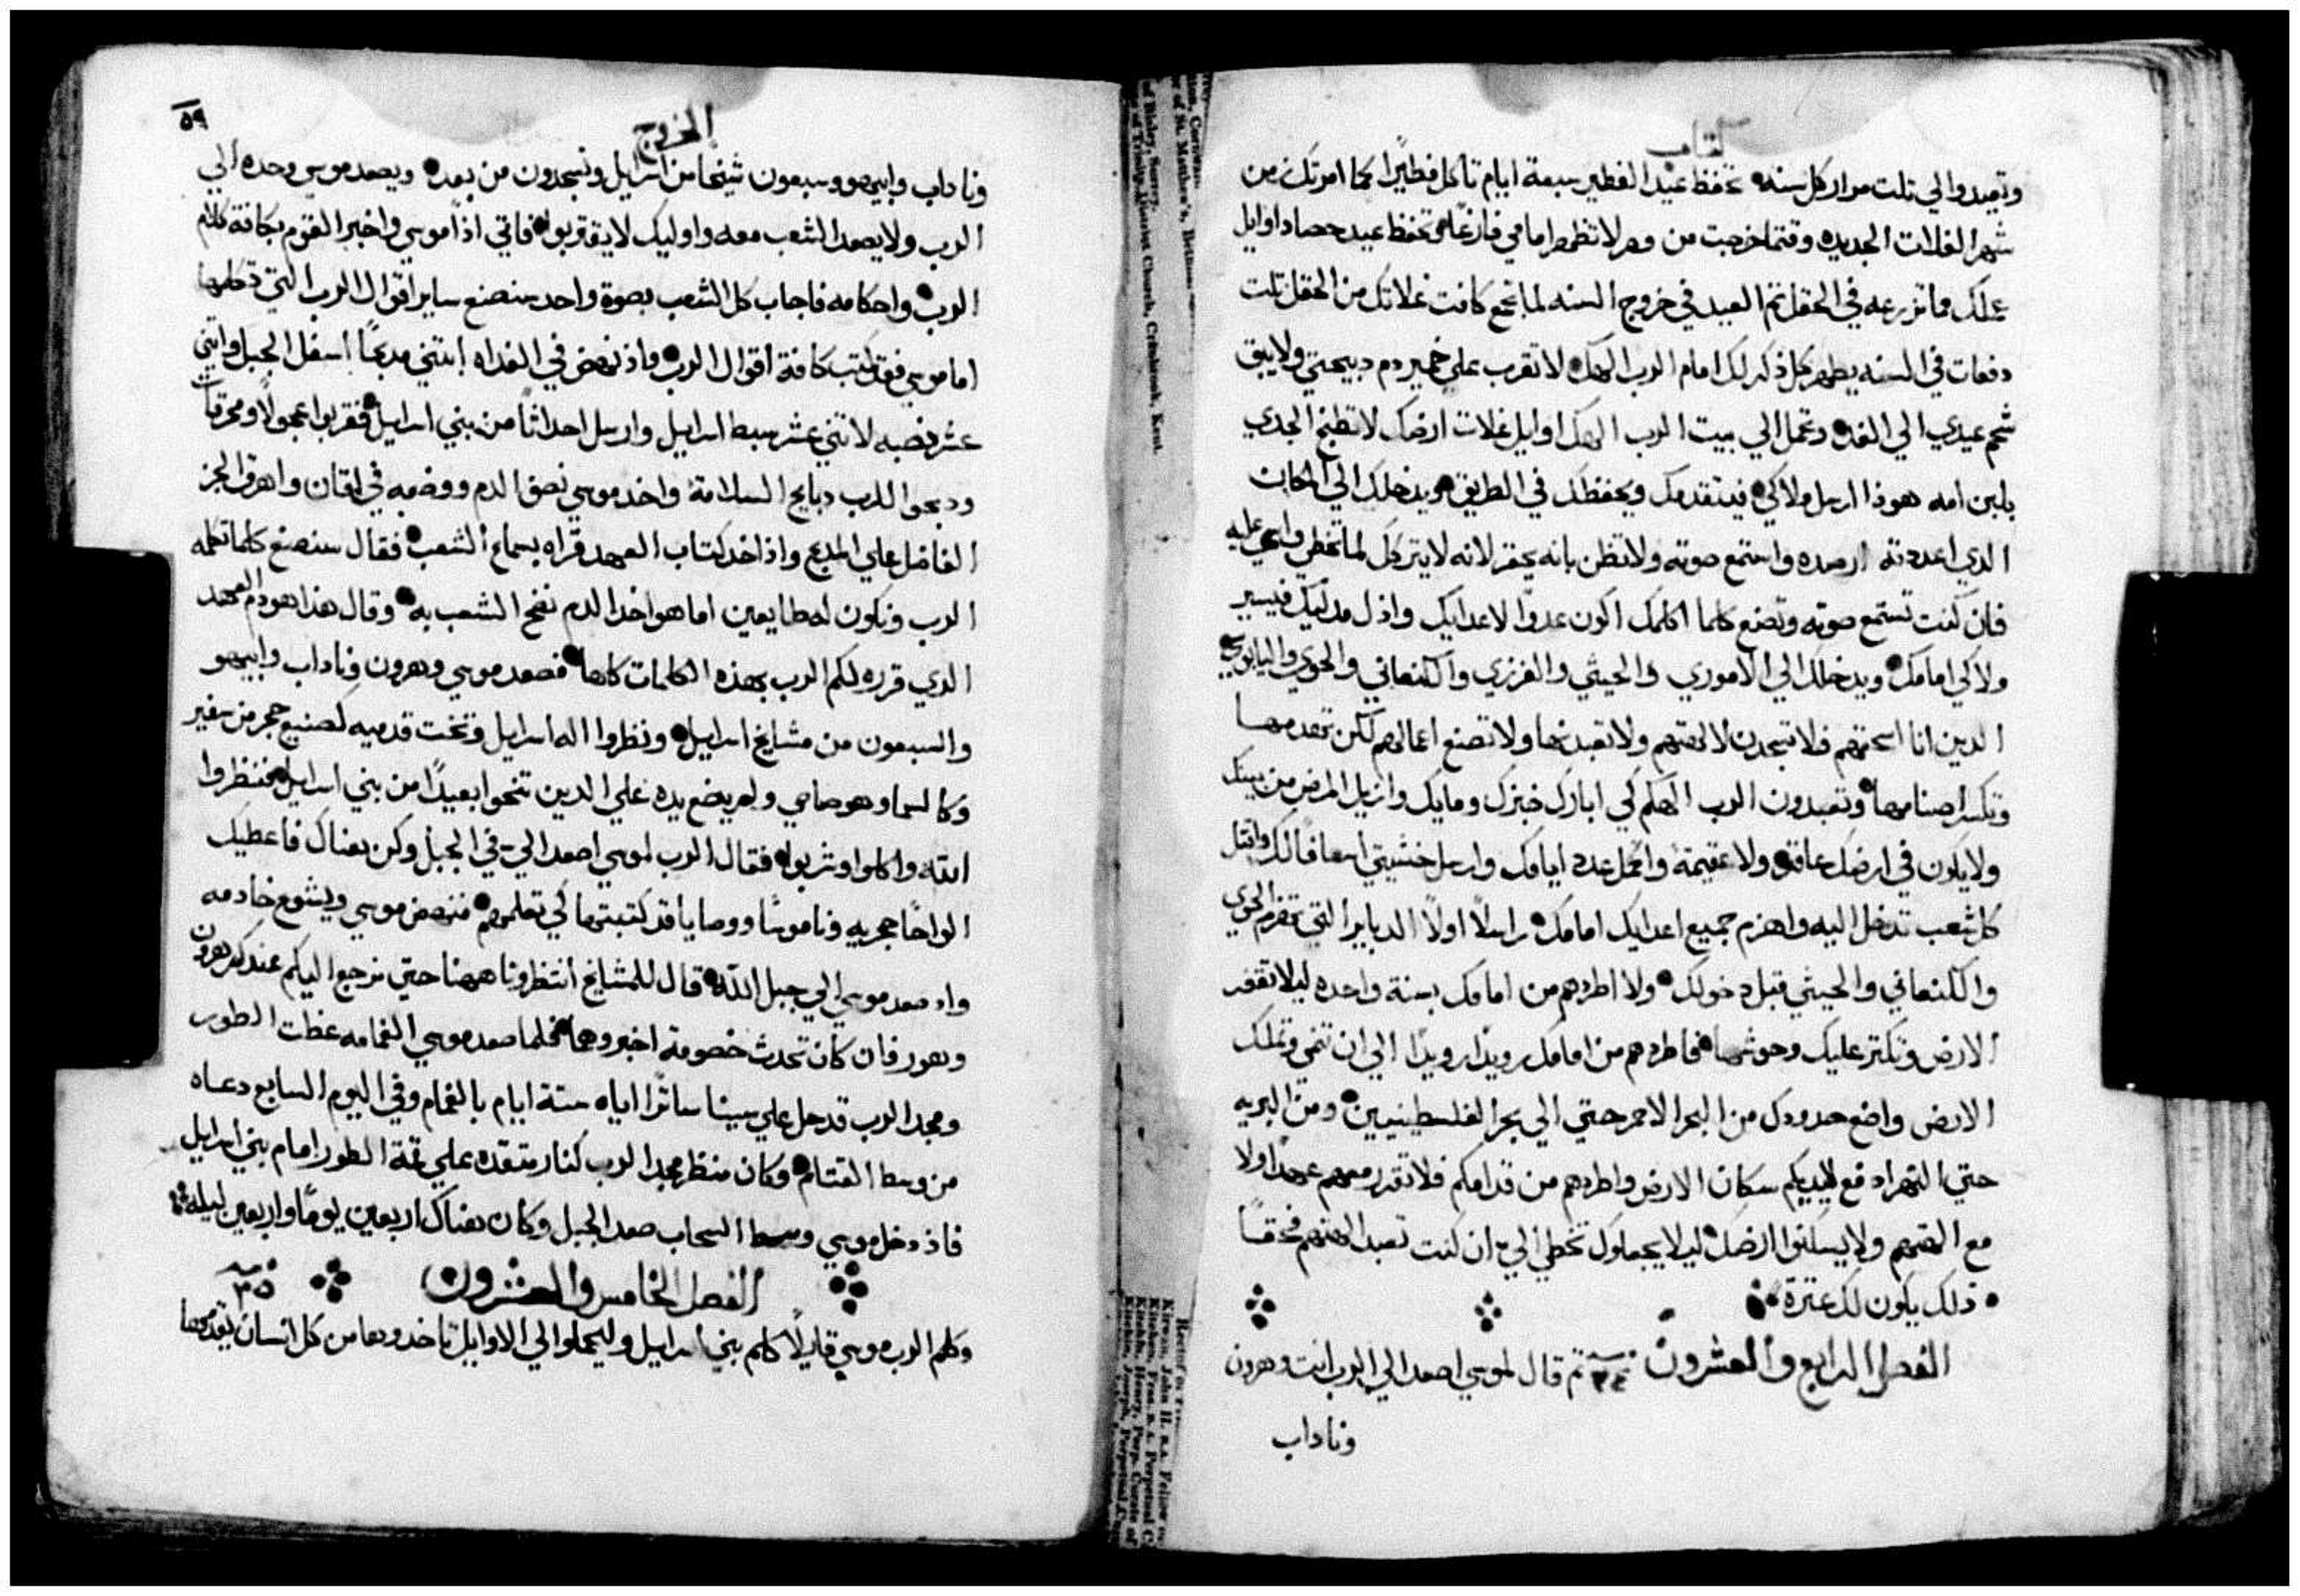 كتاب
وتعيدوا لي تلت مرار كل سنه تحفظ عيد الفطير سبعة ايام تاكل فطيرًا كما امرتك زمن
شهر الغلات الجديده وقتما خرجت من مصر لا تظهر امامي فارغًا وتحفظ عيد حصاد اوايل
عملك مما تزرعه في الحقل تم العيد في خروج السنه لما تجمع كافت غلاتك من الحقل تلت
دفعات في السنه يظهر كل ذكر لك امام الرب الهك لا تقرب علي خمير دم دبيحتي ولا يبق
شحم عيدي الي الغد وتحمل الي بيت الرب الهك اوايل غلات ارضك لا تطبخ الجدي
بلبن امه هوذا ارسل ملاكي فيتقدمك ويحفظك في الطريق ويدخلك الي المكان
الدي اعددته ارصده واستمع صوته ولا تظن بانه يحقر لانه لا يترك لما تخطي واسمي عليه
فان كنت تستمع صوته وتصنع كلما اكلمك اكون عدوًا لاعدايك واذل مذليك فيسير
ملاكي امامك ويدخلك الي الاموري والحيثي والفرزي والكنعاني والحوي واليابوسي
الدين انا اسحقهم فلا تسجدن لالهتهم ولا تعبدنها ولا تصنع اعمالهم لكن تهدمها
وتكسر اصنامها وتعبدون الرب الهكم كي ابارك خبزك ومايك وازيل المرض من بينك
ولا يكون في ارضك عاقر ولا عقيمة واكمل عدد ايامك وارسل خشيتي اسعافًا لك واقتل
كل شعب تدخل اليه واهزم جميع اعدايك امامك راسلًا اولًا الدبابير التي تهزم الحوي
والكنعاني والحيثي قبل دخولك ولا اطردهم من امامك بسنة واحده ليلا تقفر
الارض وتكتر عليك وحوشها فاطردهم من امامك رويدًا رويدًا الي ان تنمي وتملك
الارض واضع حدودك من البحر الاحمر حتي الي بحر الفلسطينيين ومن البريه
حتي النهر ادفع لايديكم سكان الارض واطردهم من قدامكم فلا تقدر معهم عهدًا ولا
مع الهتهم ولا يسكنوا ارضك ليلا يجعلوك تخطي الي ان كنت تعبد الهتهم فحقًا
ذلك يكون لك عترة
الفصل الرابع والعشرون ٢٤ تم قال لموسي اصعد الي الرب انت وهرون
وناداب
الخروج
٥٩
وناداب وابيهو وسبعون شيخًا من اسرايل وتسجدون من بعد ويصعد موسي وحده الي
الرب ولا يصعد الشعب معه واوليك لا يقتربوا فاتي اذًا موسي واخبر القوم بكافة كلام
الرب واحكامه فاجاب كل الشعب بصوة واحد سنصنع ساير اقوال الرب التي تكلمها
اما موسي فقد كتب كافة اقوال الرب واذ نهض في الغداه ابتني مدبحًا اسفل الجبل واتني
عشر نصبه لاتني عشر سبط اسرايل وارسل احداثًا من بني اسرايل فقربوا عجولًا ومحرقات
ودبحوا للرب دبايح السلامة واخد موسي نصف الدم ووضعه في لقان واهرق الجز
الفاضل علي المدبح واذ اخد كتاب العهد قراه بسماع الشعب فقال سنصنع كلما تكلمه
الرب ونكون له طايعين اما هو اخد الدم نضح الشعب به وقال هذا هو دم العهد
الدي قرره لكم الرب بهذه الكلمات كلها فصعد موسي وهرون وناداب وابيهو
والسبعون من مشايخ اسرايل ونظروا اله اسرايل وتحت قدميه كصنيع حجر من سفير
وكالسما وهو صاحي ولم يضع يده علي الدين تنحوا بعيدًا من بني اسرايل فنظروا
الله واكلوا وشربوا فقال الرب لموسي اصعد الي في الجبل وكن هناك فاعطيك
الواحًا حجريه وناموسًا ووصايا قد كتبتها كي تعلمهم فنهض موسي ويشوع خادمه
واد صعد موسي الي جبل الله قال للمشايخ انتظرونا ههنا حتي نرجع اليكم عندكم هرون
وهور فان كان تحدث خصومة اخبروهما فلما صعد موسي الغمامه غطت الطور
ومجد الرب قد حل علي سينا ساترًا اياه ستة ايام بالغمام وفي اليوم السابع دعاه
من وسط القتام وكان منظر مجد الرب كنار متقده علي قمة الطور امام بني اسرايل
فاذ دخل موسي وسط السحاب صعد الجبل وكان هناك اربعين يومًا واربعين ليله
الفصل الخامس والعشرون ٢٥
وكلم الرب موسي قايلًا كلم بني اسرايل وليحملوا الي الاوايل تاخدوها من كل انسان يقدمها